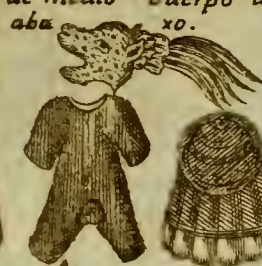 de medio cuerpo
aba xo.